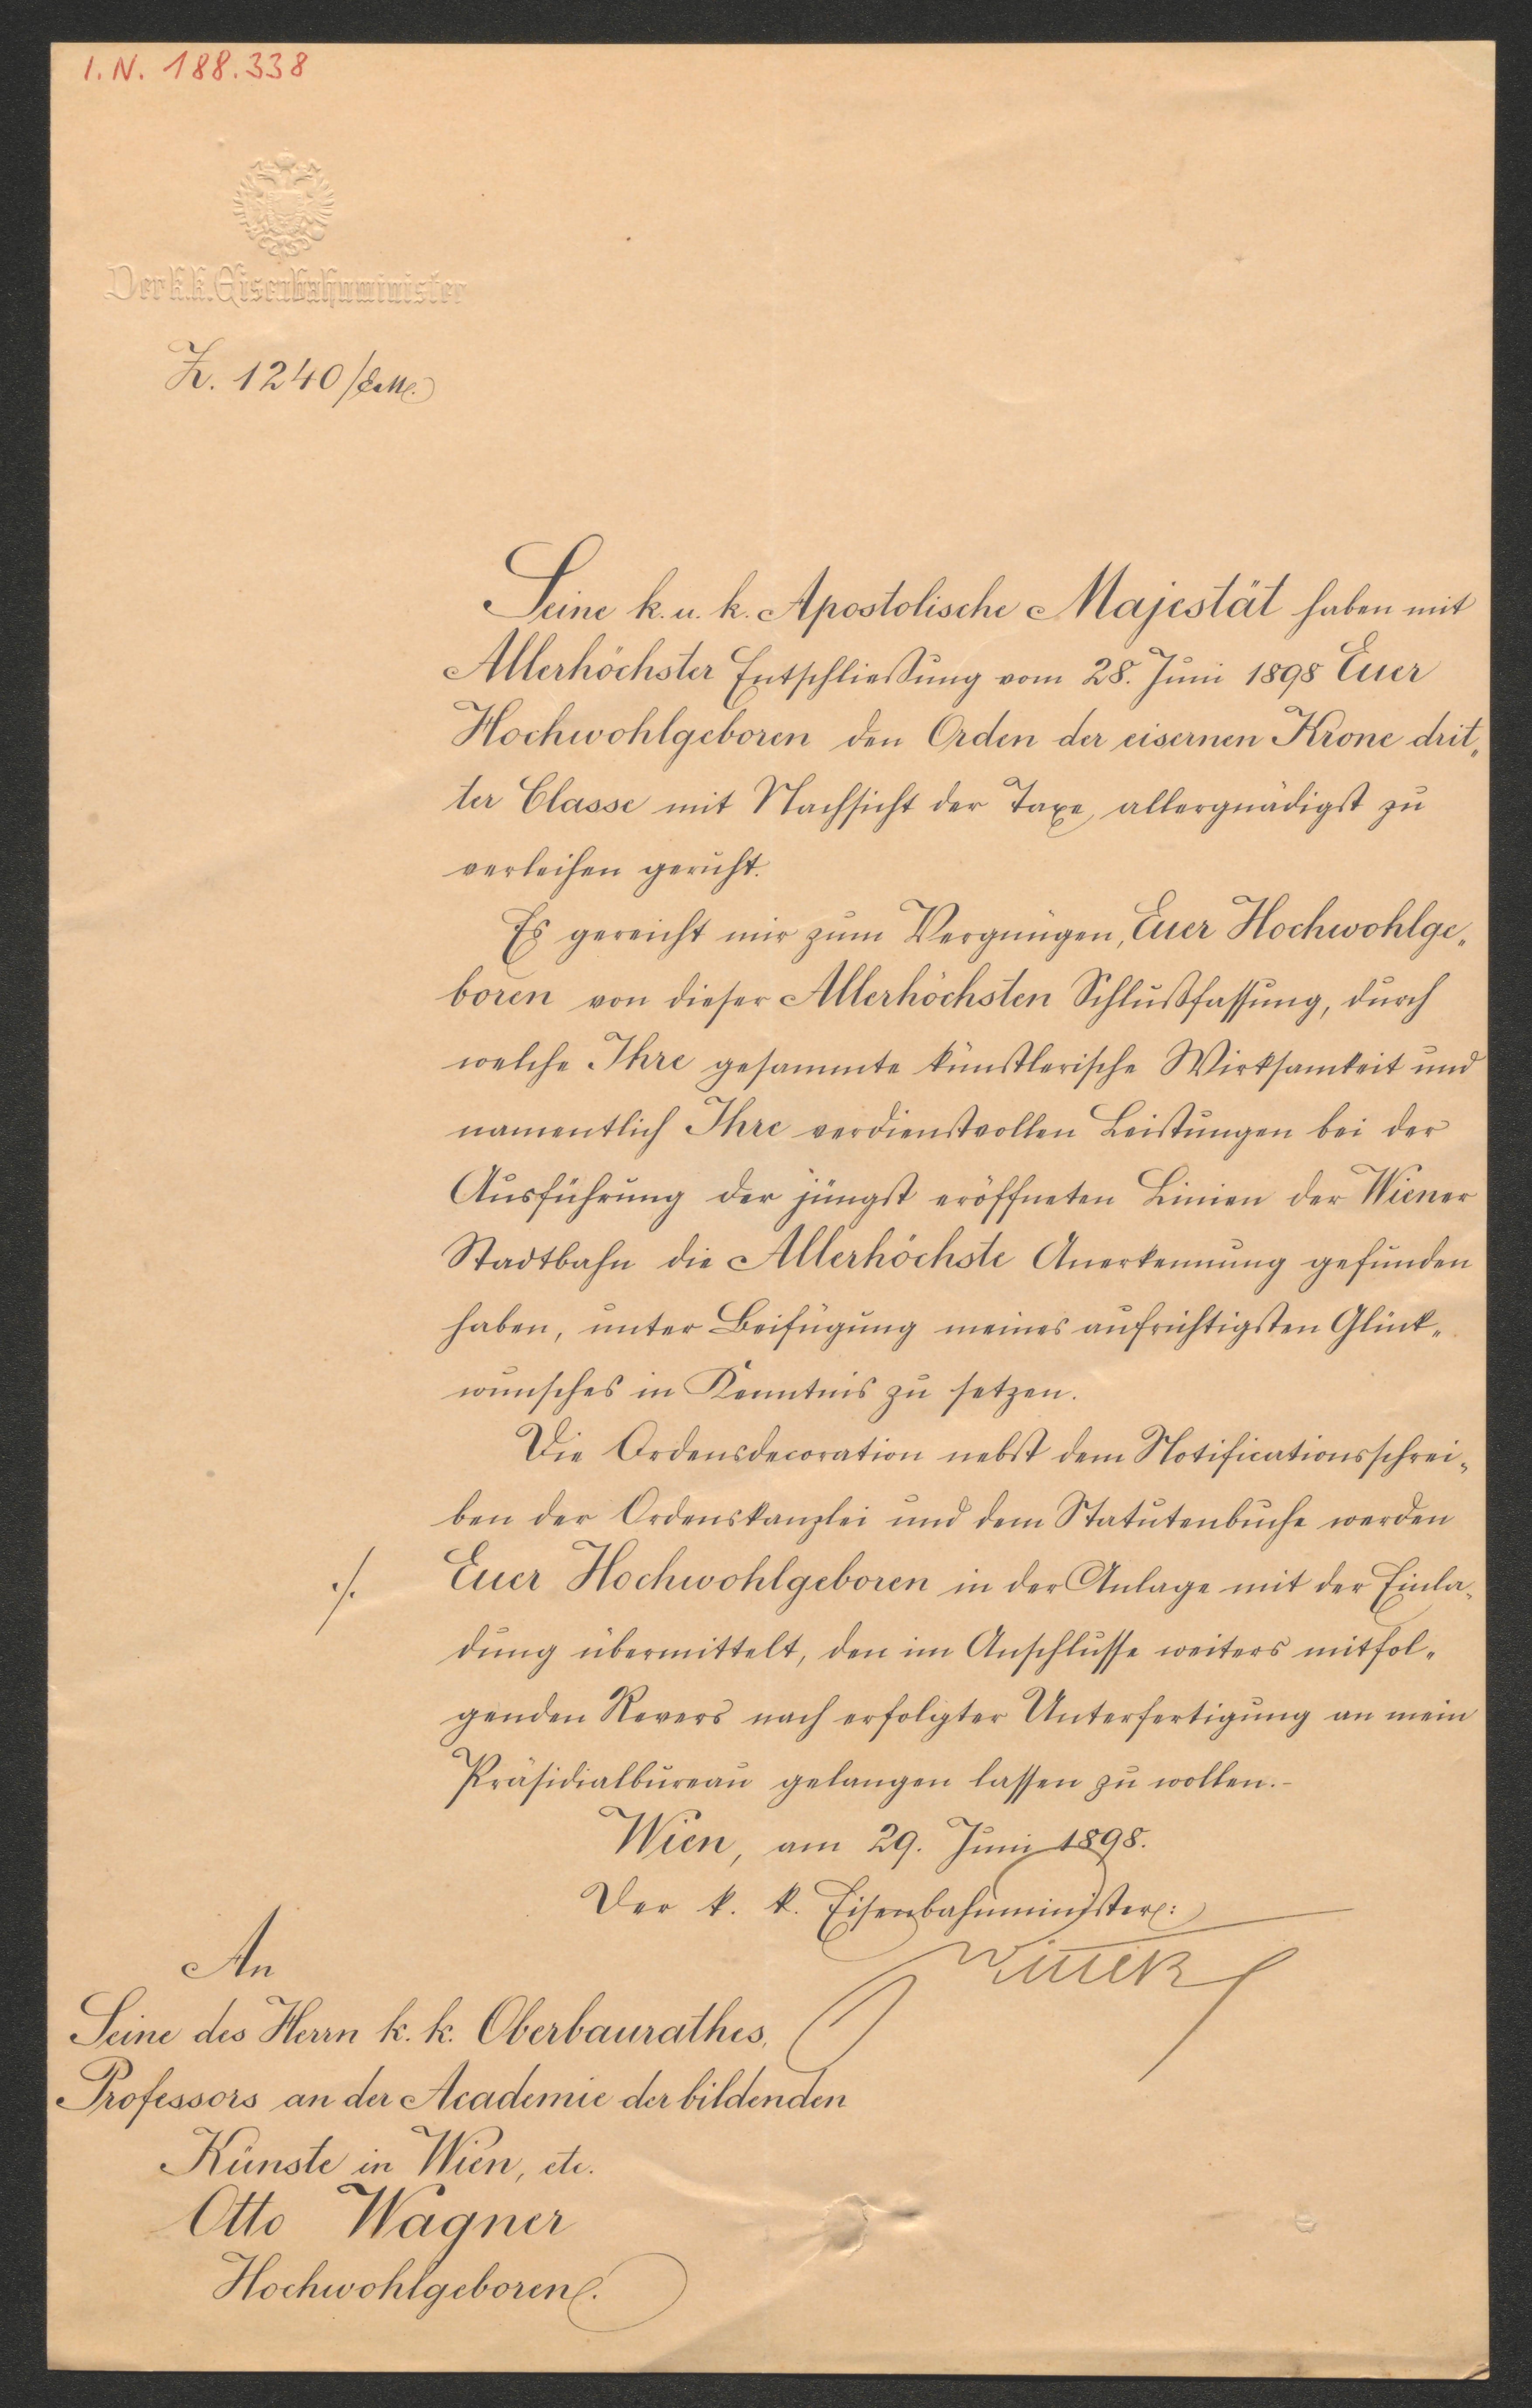 I.N. 188.338
Der k.k. Eisenbahnminister
Z. 1240/E.M.
Seine k. u. k. Apostolische Majestät haben mit
Allerhöchster Entschließung vom 28. Juni 1898 Euer
Hochwohlgeboren den Orden der eisernen Krone drit„
ter Classe mit Nachsicht der Taxe, allergnädigst zu
verleihen geruht.
Es gereicht mir zum Vergnügen, Euer Hochwohlge„
boren von dieser Allerhöchsten Schlußfassung, durch
welche Ihre gesammte künstlerische Wirksamkeit und
namentlich Ihre verdienstvollen Leistungen bei der
Ausführung der jüngst eröffneten Linien der Wiener
Stadtbahn die Allerhöchste Anerkennung gefunden
haben, unter Beifügung meines aufrichtigsten Glück„
wunsches in Kenntnis zu setzen.
Die Ordensdecoration nebst dem Notificationsschrei„
ben der Ordenskanzlei und dem Statutenbuche werden
./. Euer Hochwohlgeboren in der Anlage mit der Einla„
dung übermittelt, den im Anschlusse weiters mitfol„
genden Revers nach erfolgter Unterfertigung an mein
Präsidialbureau gelangen lassen zu wollen.-
Wien, am 29. Juni 1898.
Der k. k. Eisenbahnminister:
Wittek
An
Seine des Herrn k. k. Oberbaurathes,
Professors an der Academie der bildenden
Künste in Wien, etc.
Otto Wagner
Hochwohlgeboren.